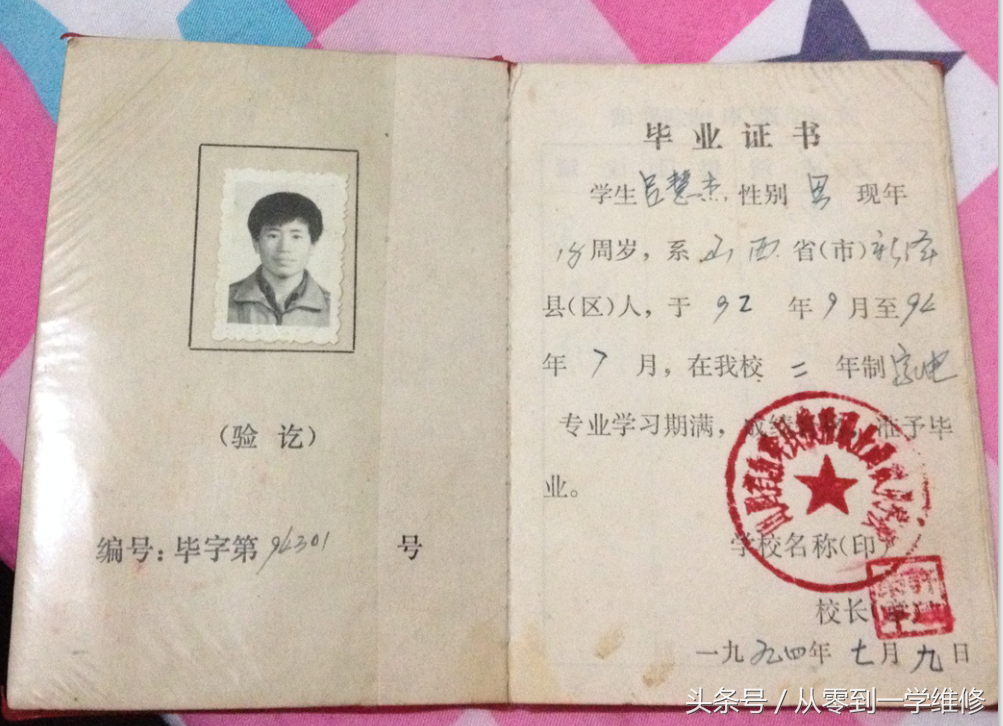 (验讫)
编号：毕字第94301号
毕业证书
学生吕慧杰,性别 男 现年
18周岁，系山西省(市)新绛
县(区)人，于 92 年9月至94
年 7 月，在我校 二 年制家电
专业学习期满，成绩 准予毕
业。
学校名称(印)
校长
一九九四年七月九日
头条号 / 从零到一学维修